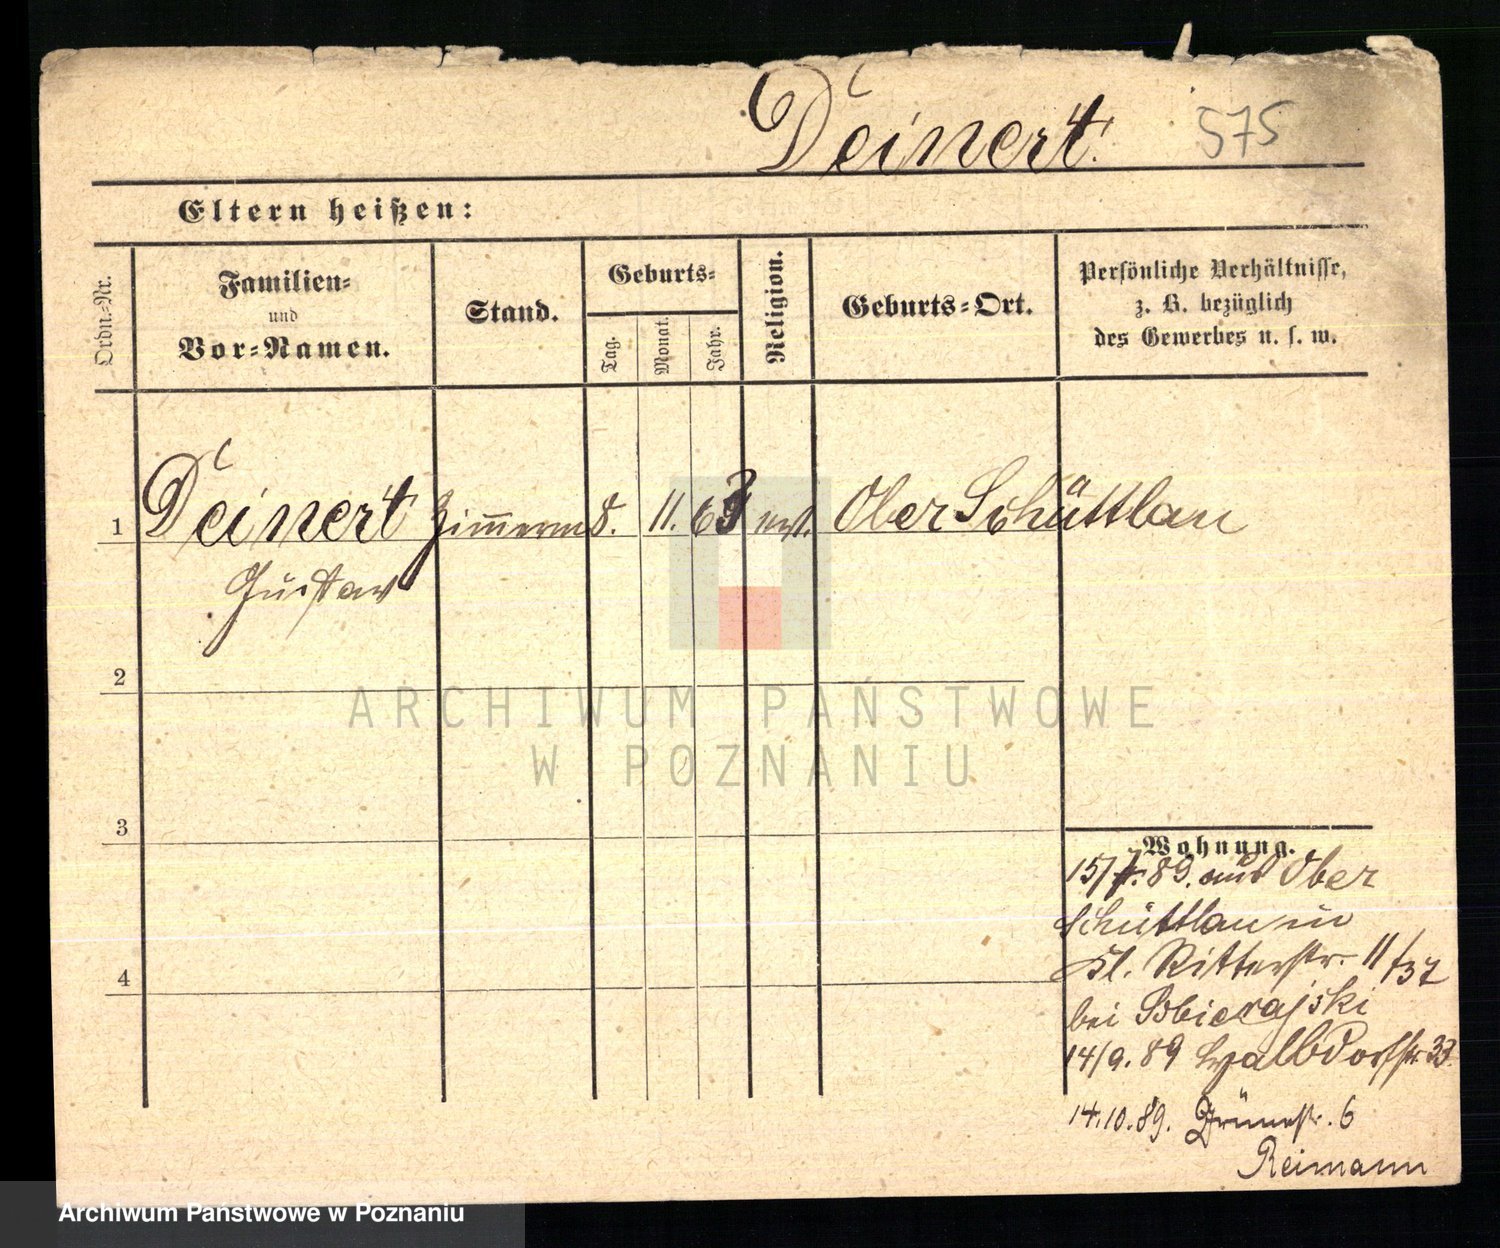 Deinert. 575
Eltern heißen:
Ordn.-Nr.
Familien-
und
Vor-Namen.
Stand.
Geburts-
Tag.
Monat.
Jahr.
Religion.
Geburts-Ort.
Persönliche Verhältnisse,
z. B. bezüglich
des Gewerbes u. s. w.
1 Deinert Zimmerm 8. 11. 63 Ober Schüttlau
Gustav
2
3
4
Wohnung.
15/7.89. aus Ober
Schüttlau in
Kl. Ritterstr. 11/37
bei Sobierajski
14/9.89 Halbdorfstr. 33
14.10.89. Grünestr. 6
Reimann
ARCHIWUM PAŃSTWOWE
W POZNANIU
Archiwum Państwowe w Poznaniu